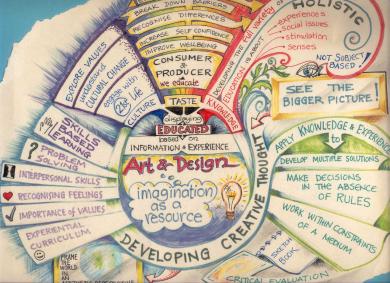 BREAK DOWN BARRIERS
RECOGNISE DIFFERENCES
INCREASE SELF CONFIDENCE
IMPROVE WELLBEING
CONSUMER &
PRODUCER
we educate
TASTE
displaying
EDUCATED
based on
INFORMATION & EXPERIENCE
Art & Design
imagination
as a
resource
DEVELOPING CREATIVE THOUGHT
EXPLORE VALUES
understand
CULTURAL CHANGE
engage with
life
CULTURE
KNOWLEDGE
EDUCATION IS ABOUT
DEVELOPING THE full variety of
HOLISTIC
experiences
social issues
stimulation
senses
NOT SUBJECT
BASED!
SEE THE
BIGGER PICTURE!
SKILLS
BASED
LEARNING
? PROBLEM
SOLVING
INTERPERSONAL SKILLS
RECOGNISING FEELINGS
IMPORTANCE of VALUES
EXPERIENTIAL
CURRICULUM
FRAME
THE
WORLD
APPLY KNOWLEDGE & EXPERIENCE
to
DEVELOP MULTIPLE SOLUTIONS
MAKE DECISIONS
IN THE ABSENCE
OF RULES
WORK WITHIN CONSTRAINTS
OF A MEDIUM
SKETCH
BOOK
CRITICAL EVALUATION